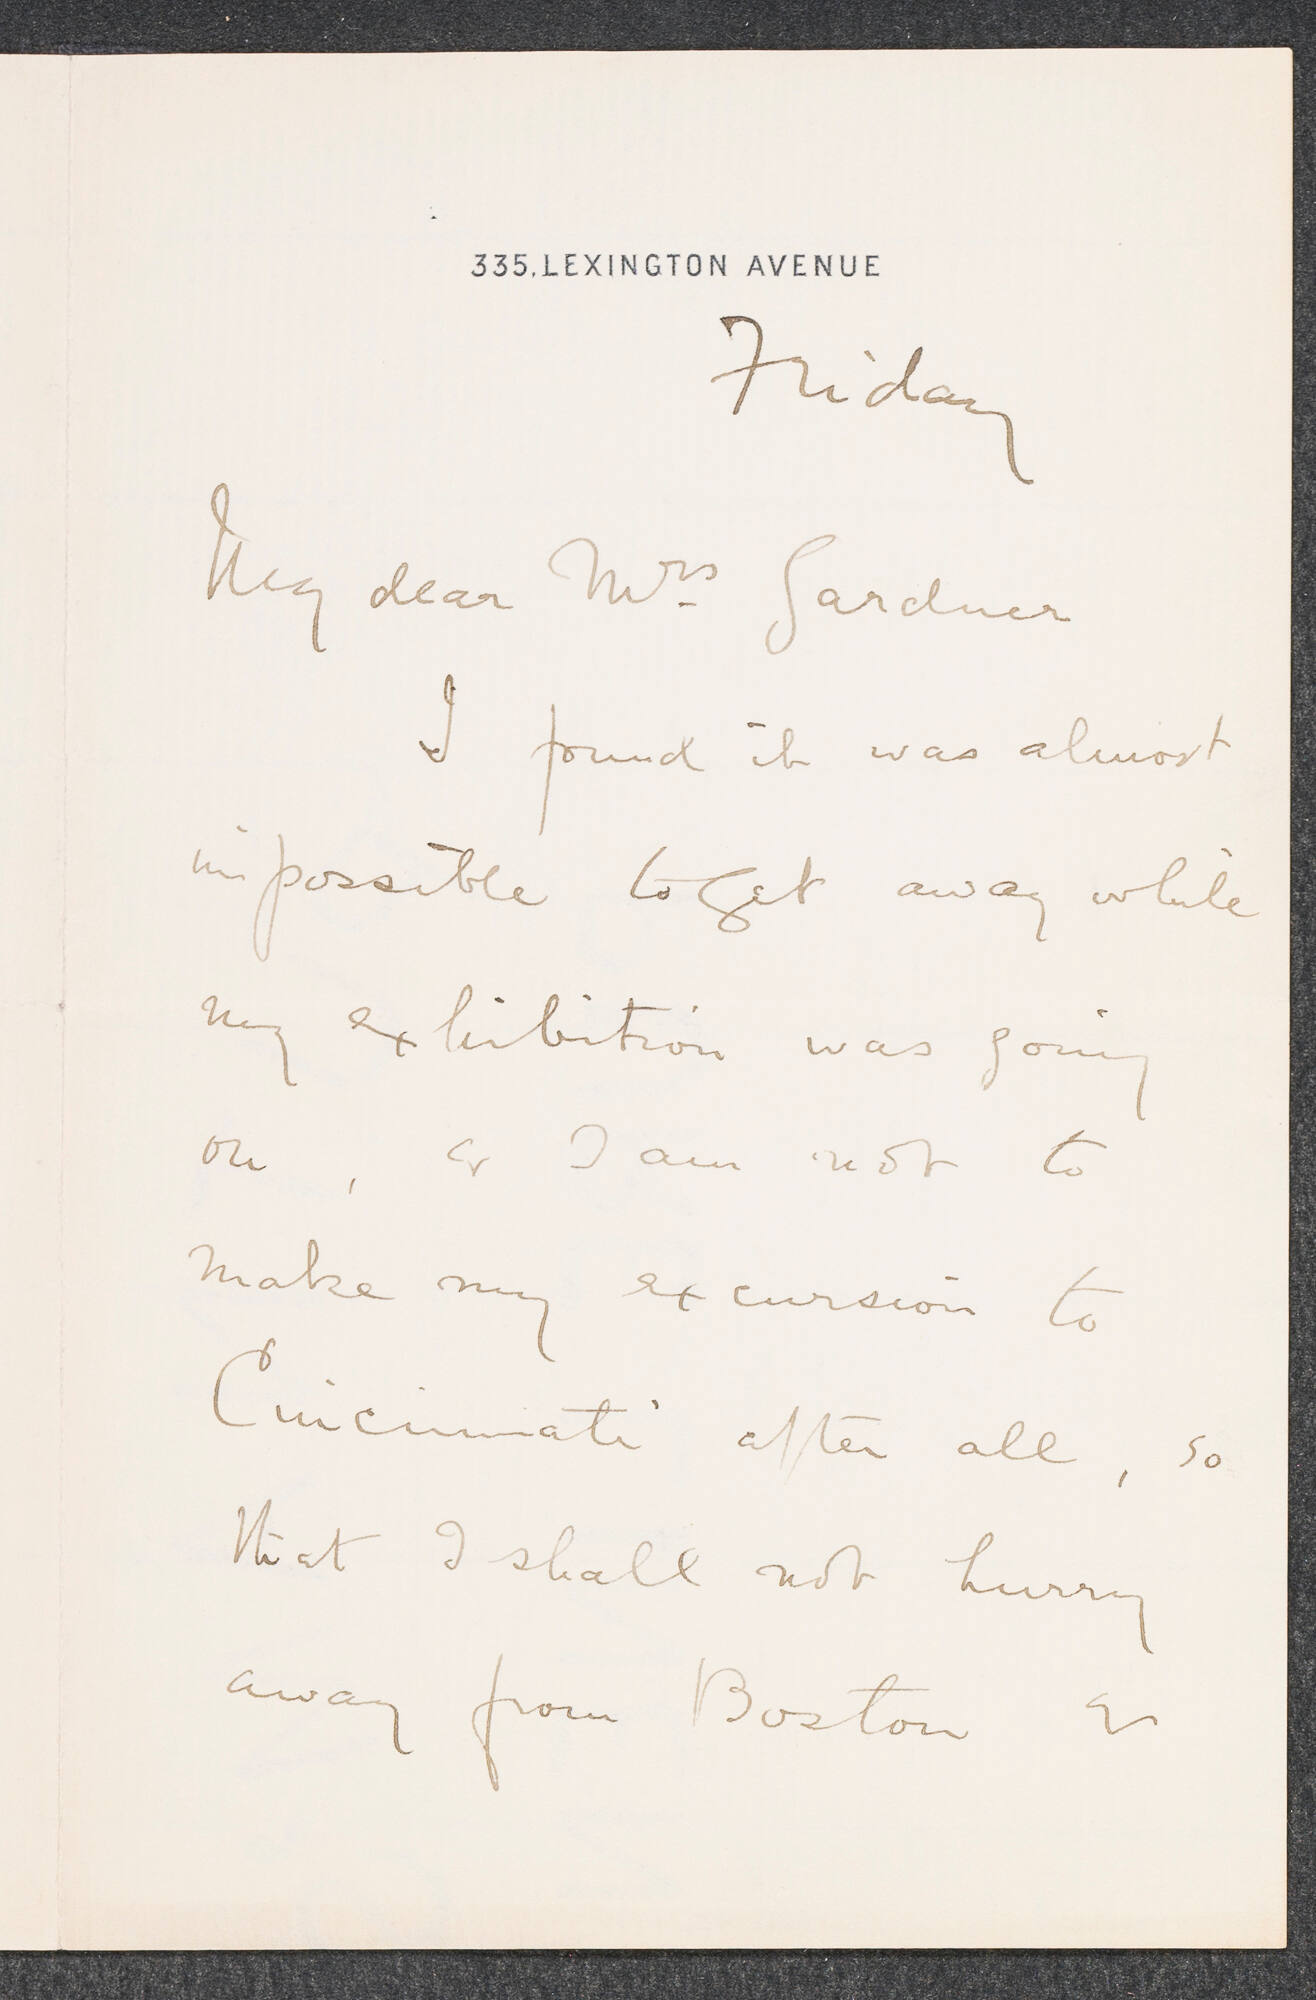 335, LEXINGTON AVENUE
Friday
My dear Mrs Gardner
I found it was almost
impossible to get away while
my exhibition was going
on, & I am not to
make my excursion to
Cincinnati after all, so
that I shall not hurry
away from Boston &